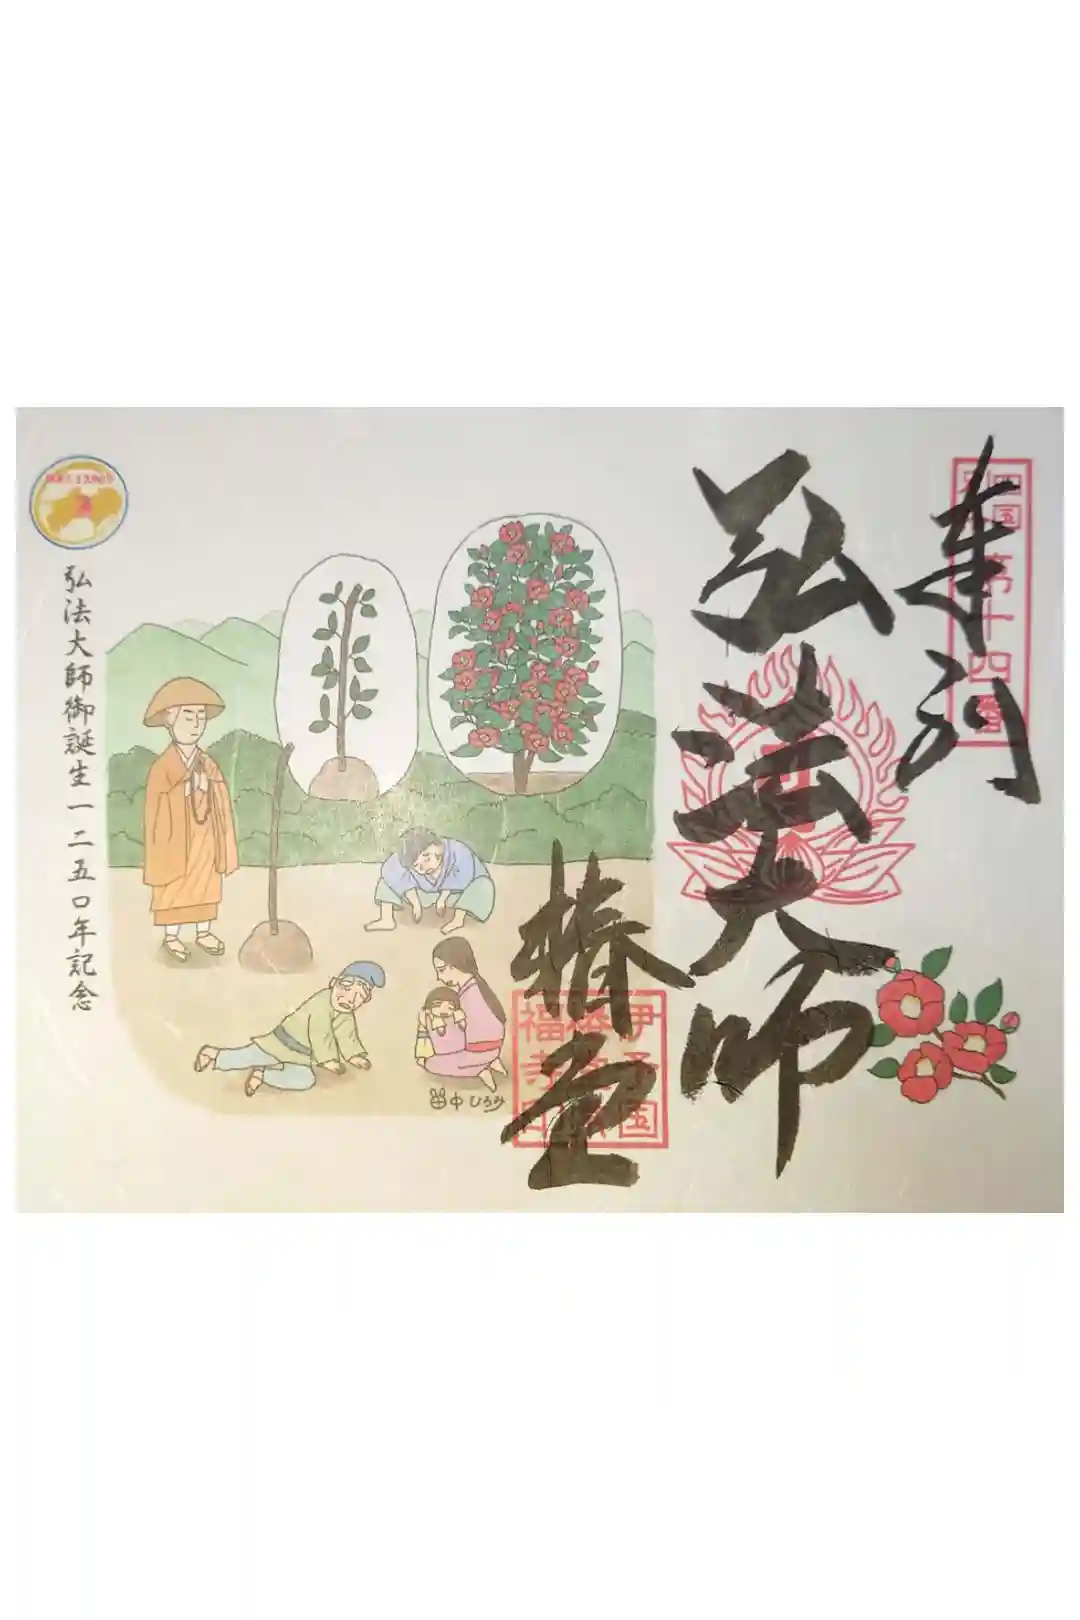 奉拝
四国
別格
第十四番
弘法大師
椿堂
伊予国
福寺印
田中ひろみ
弘法大師御誕生一二五〇年記念